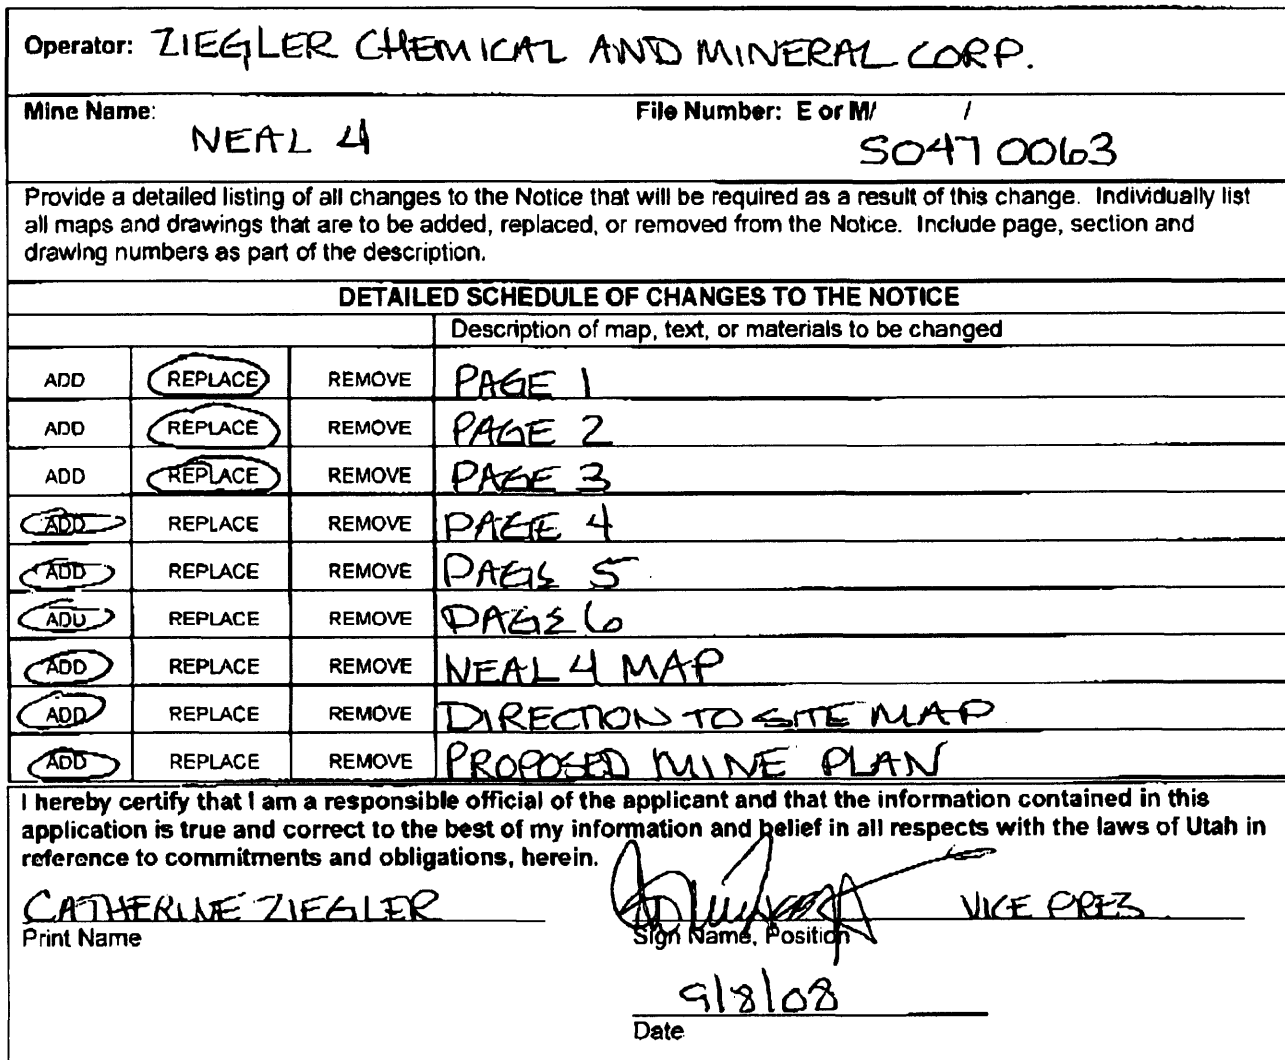 Operator: ZIEGLER CHEMICAL AND MINERAL CORP.
Mine Name: File Number: E or M/ /
NEAL 4 S0470063
Provide a detailed listing of all changes to the Notice that will be required as a result of this change. Individually list
all maps and drawings that are to be added, replaced, or removed from the Notice. Include page, section and
drawing numbers as part of the description.
DETAILED SCHEDULE OF CHANGES TO THE NOTICE
Description of map, text, or materials to be changed
ADD REPLACE REMOVE PAGE 1
ADD REPLACE REMOVE PAGE 2
ADD REPLACE REMOVE PAGE 3
ADD REPLACE REMOVE PAGE 4
ADD REPLACE REMOVE PAGE 5
ADD REPLACE REMOVE PAGE 6
ADD REPLACE REMOVE NEAL 4 MAP
ADD REPLACE REMOVE DIRECTION TO SITE MAP
ADD REPLACE REMOVE PROPOSED MINE PLAN
I hereby certify that I am a responsible official of the applicant and that the information contained in this
application is true and correct to the best of my information and belief in all respects with the laws of Utah in
reference to commitments and obligations, herein.
CATHERINE ZIEGLER VICE PREZ.
Print Name Sign Name, Position
9/8/08
Date